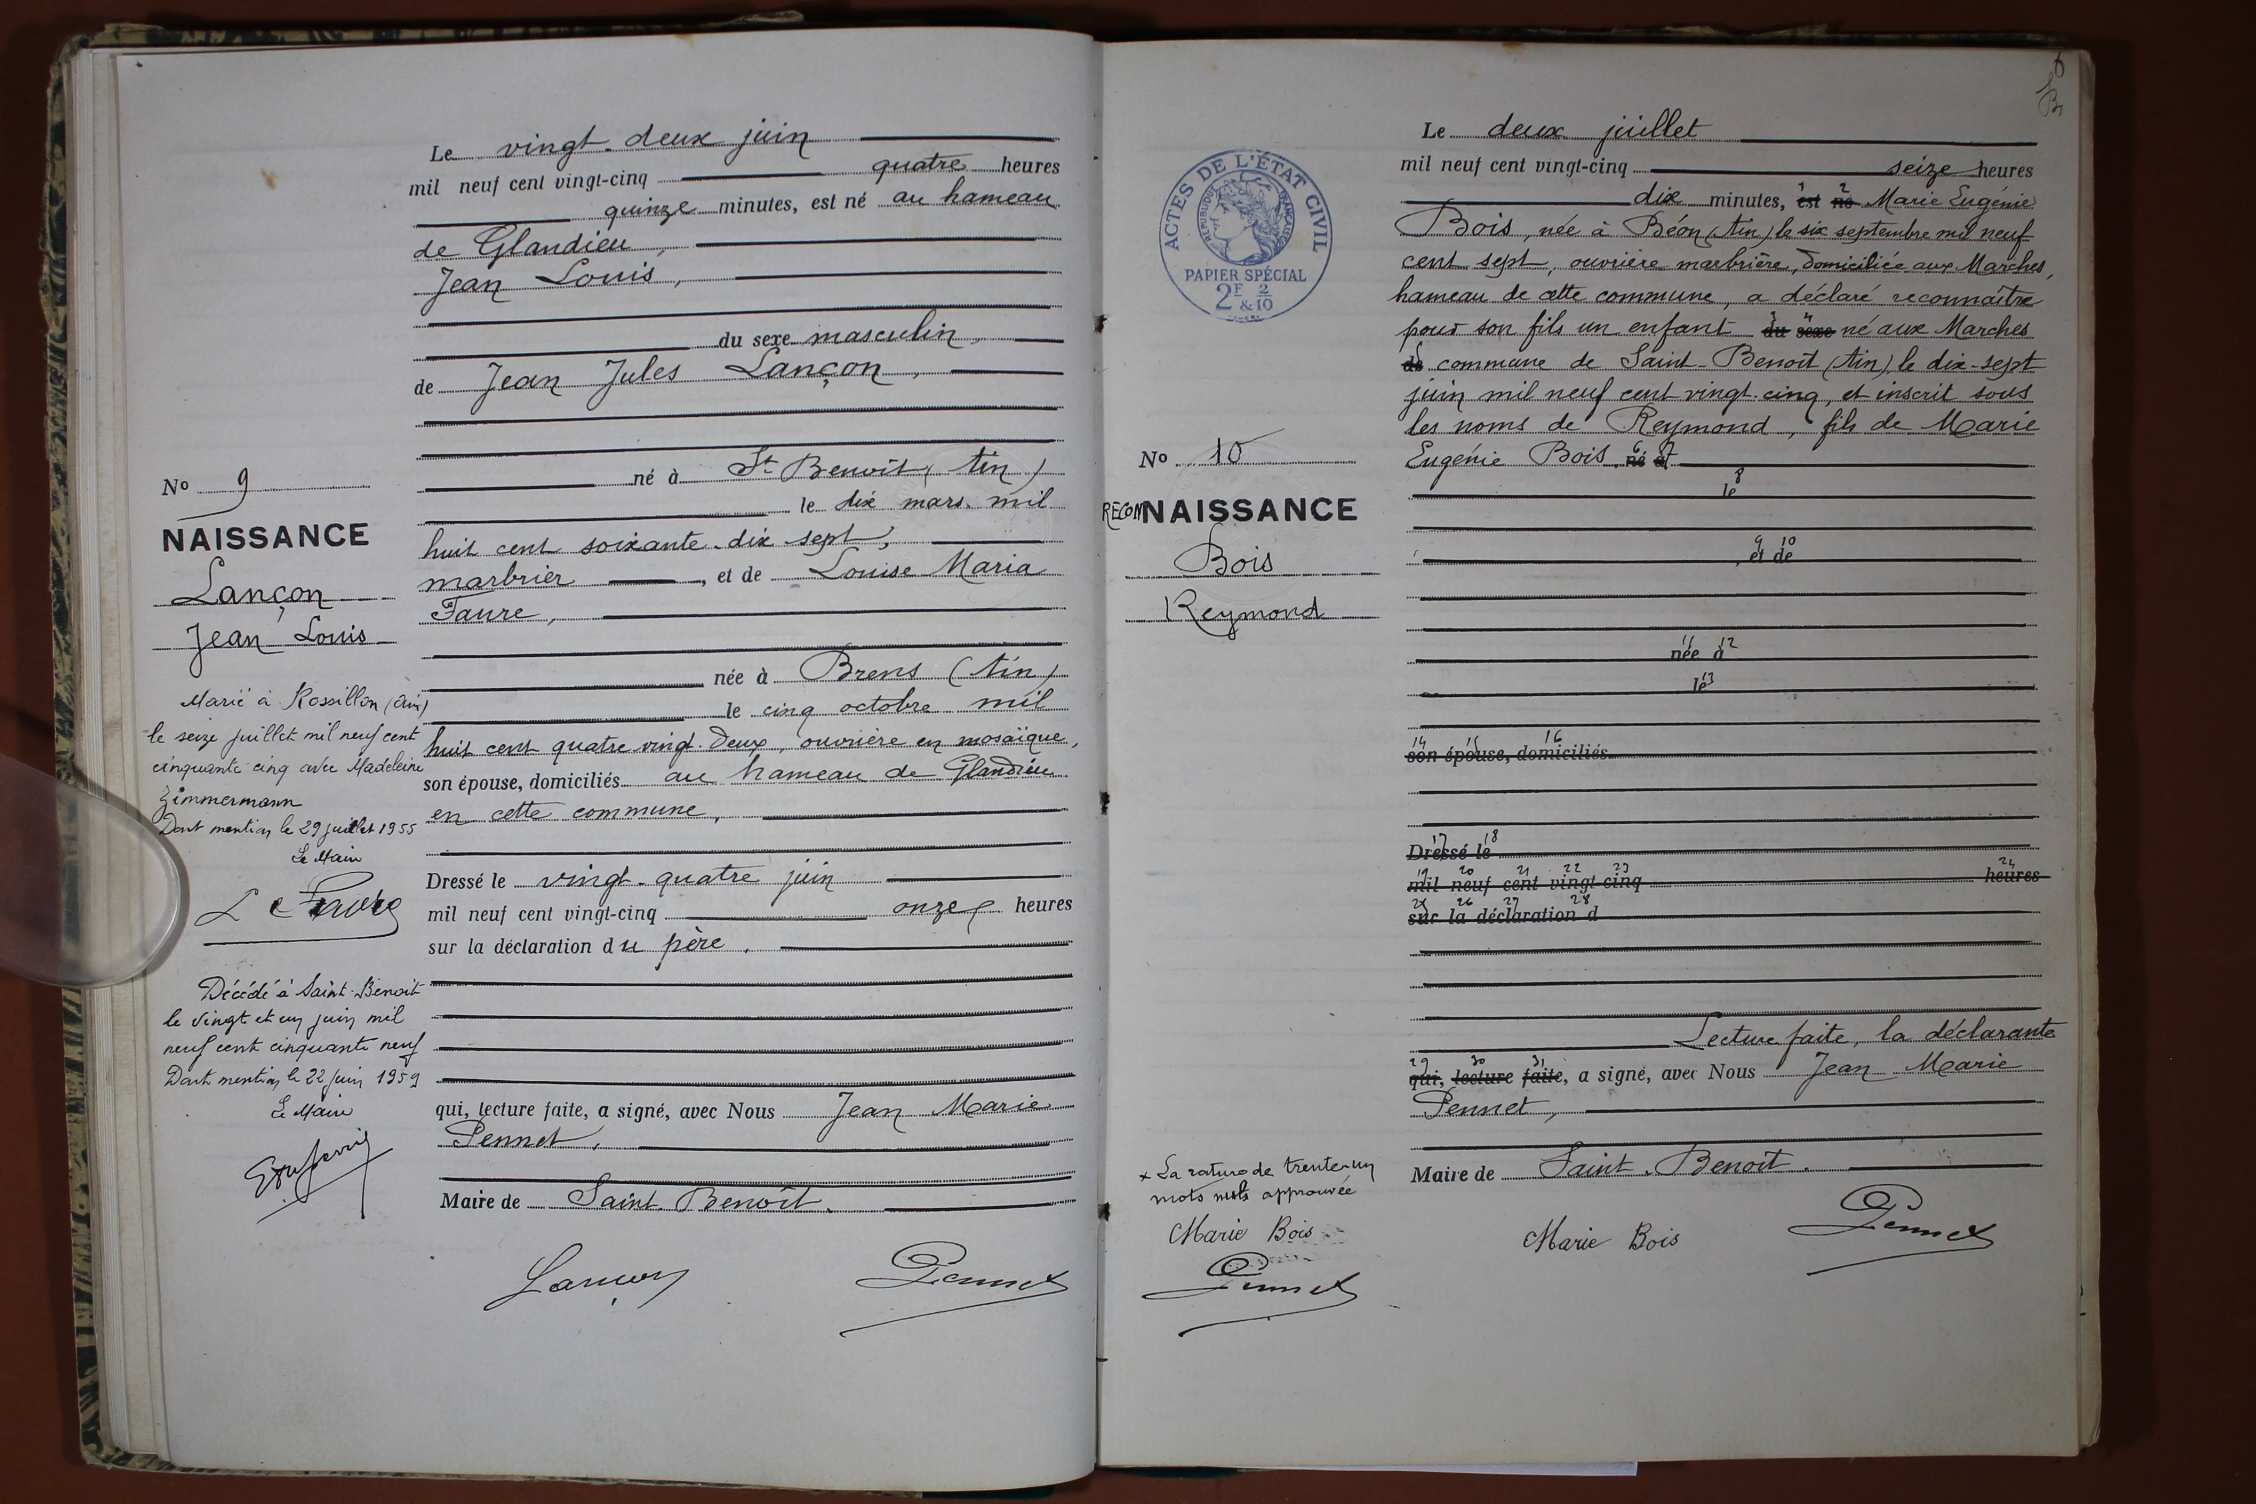 Le vingt-deux juin
mil neuf cent vingt-cinq quatre heures
quinze minutes, est né au hameau
de Glandieu,
Jean Louis,
du sexe masculin,
de Jean Jules Lançon,
né à St Benoît (Ain)
le dix mars mil
huit cent soixante-dix-sept,
marbrier, et de Louise Maria
Faure,
née à Brens (Ain)
le cinq octobre mil
huit cent quatre vingt-deux, ouvrière en mosaïque,
son épouse, domiciliés au hameau de Glandieu
en cette commune,
Dressé le vingt-quatre juin
mil neuf cent vingt-cinq onze heures
sur la déclaration du père,
qui, lecture faite, a signé, avec Nous Jean Marie
Pennet,
Maire de Saint-Benoît.
Lançon Pennet
No 9
NAISSANCE
Lançon
Jean Louis
Marié à Rossillon (Ain)
le seize juillet mil neuf cent
cinquante cinq avec Madeleine
Zimmermann
Dont mention le 29 juillet 1955
Le Maire
Décédé à Saint-Benoit
le vingt et un juin mil
neuf cent cinquante neuf
Dont mention le 22 juin 1959
Le Maire
6
ACTES DE L'ÉTAT CIVIL
RÉPUBLIQUE FRANÇAISE
PAPIER SPÉCIAL
2F & 2/10
No 10
RECONNAISSANCE
Bois
Reymond
Le deux juillet
mil neuf cent vingt-cinq seize heures
dix minutes, 1 est 2 né Marie Eugénie
Bois, née à Béon (Ain) le six septembre mil neuf
cent sept, ouvrière marbrière, domiciliée aux Marches,
hameau de cette commune, a déclaré reconnaître
pour son fils un enfant 3 du 4 sexe né aux Marches
5 de commune de Saint-Benoît (Ain), le dix-sept
juin mil neuf cent vingt-cinq, et inscrit sous
les noms de Reymond, fils de Marie
Eugénie Bois. 6 né 7 à
8 le
9 et 10 de
11 née 12 à
13 le
14 son 15 épouse, 16 domiciliés
17 Dressé 18 le
19 mil 20 neuf 21 cent 22 vingt 23 cinq 24 heures
25 sur 26 la 27 déclaration 28 d
Lecture faite, la déclarante
29 qui, 30 lecture 31 faite, a signé, avec Nous Jean Marie
Pennet,
Maire de Saint-Benoît.
Marie Bois Pennet
x La rature de trente-un
mots nuls approuvée
Marie Bois
Pennet